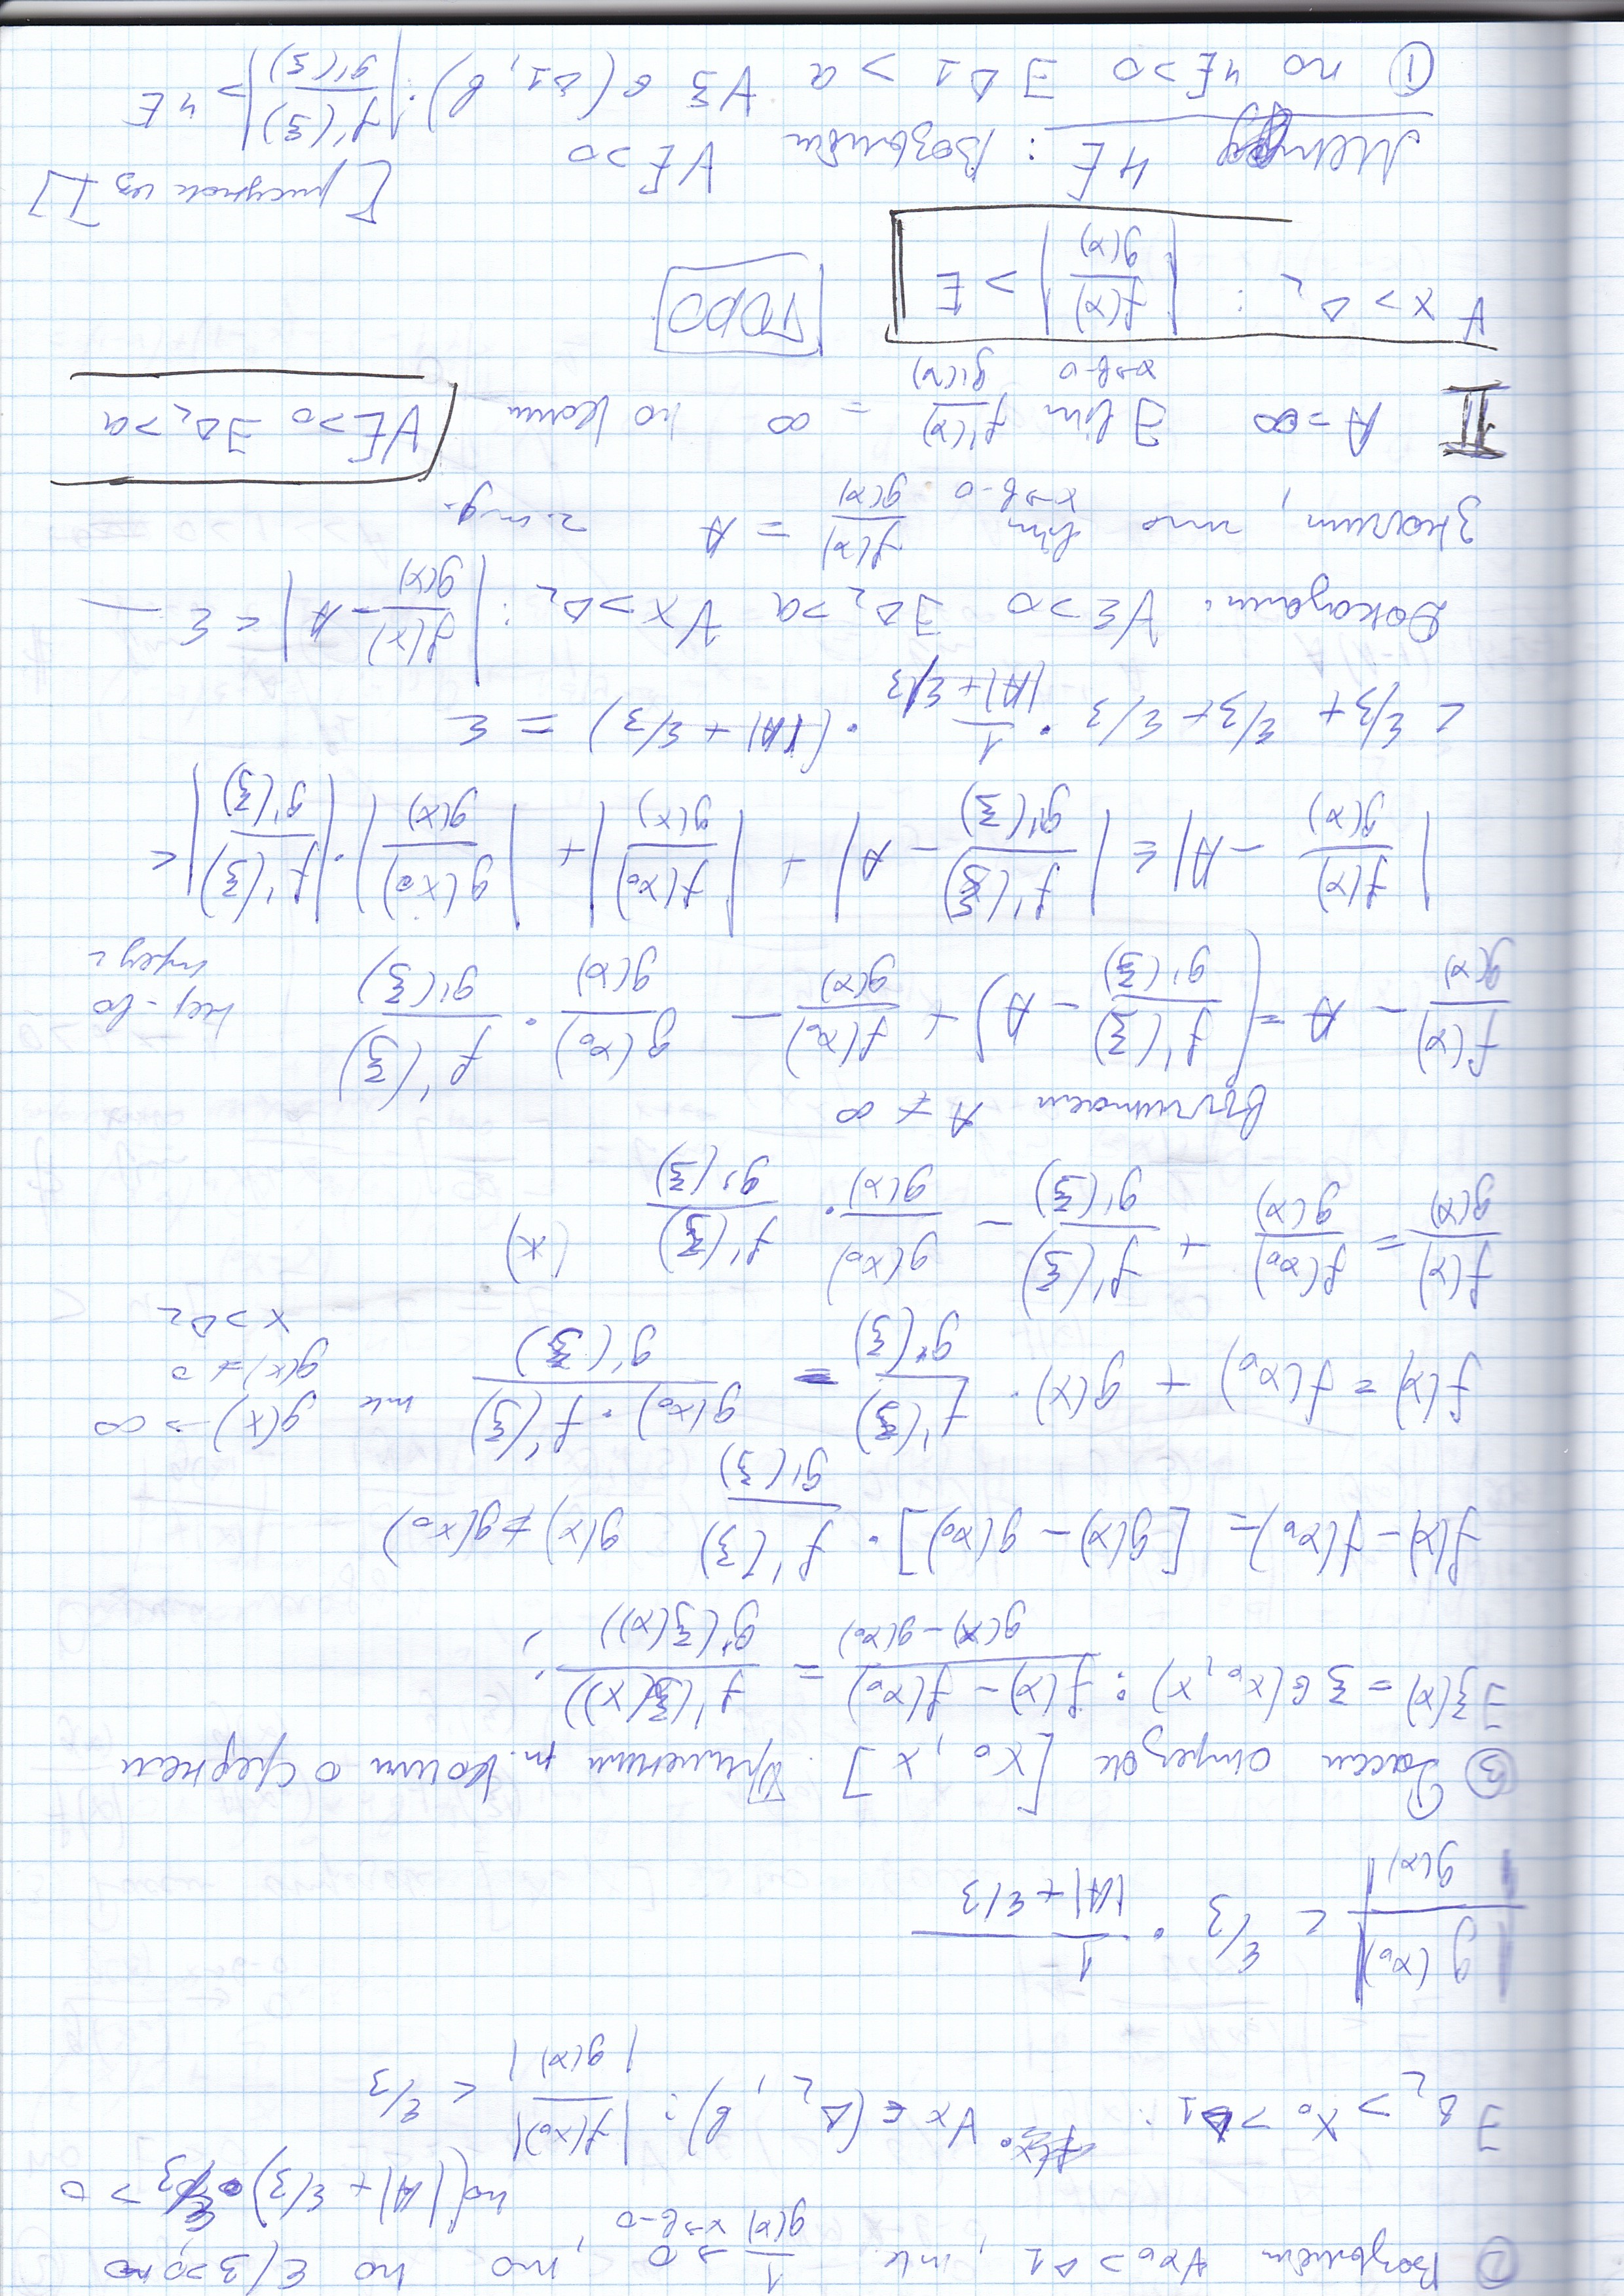 ② Возьмём ∀x₀ > Δ1, тк. 1/g(x) → 0 x→b-0, то по ε/3 > 0, по
по (|A| + ε/3) · ε/3 > 0
∃ Δ₂ > x₀ > Δ1 : ∀x ∈ (Δ₂, b) : |f(x₀)|/|g(x)| < ε/3
|g(x₀)/g(x)| < ε/3 · 1/(|A| + ε/3)
③ Рассм отрезок [x₀, x]. Применим т. Коши о среднем
∃ ξ(x) = ξ ∈ (x₀, x) : (f(x) - f(x₀))/(g(x) - g(x₀)) = f'(ξ(x))/g'(ξ(x)) ;
f(x) - f(x₀) = [g(x) - g(x₀)] · f'(ξ)/g'(ξ) g(x) ≠ g(x₀)
f(x) = f(x₀) + g(x) · f'(ξ)/g'(ξ) - g(x₀) · f'(ξ)/g'(ξ) тк g(x) → ∞
g(x) ≠ 0
x > Δ₂
f(x)/g(x) = f(x₀)/g(x) + f'(ξ)/g'(ξ) - g(x₀)/g(x) · f'(ξ)/g'(ξ) (*)
вычитаем A ≠ ∞
f(x)/g(x) - A = (f'(ξ)/g'(ξ) - A) + f(x₀)/g(x) - g(x₀)/g(x) · f'(ξ)/g'(ξ) нер-во
треуг
|f(x)/g(x) - A| ≤ |f'(ξ)/g'(ξ) - A| + |f(x₀)/g(x)| + |g(x₀)/g(x)| · |f'(ξ)/g'(ξ)| <
< ε/3 + ε/3 + ε/3 · 1/(|A| + ε/3) · (|A| + ε/3) = ε
Доказали: ∀ε > 0 ∃Δ₂ > a ∀x > Δ₂ : |f(x)/g(x) - A| < ε —
значит, что lim x→b-0 f(x)/g(x) = A ч.т.д.
II A = ∞ ∃ lim x→b-0 f'(x)/g'(x) = ∞ по Коши ∀E > 0 ∃Δ₂ > a
∀ x > Δ₂ : |f(x)/g(x)| > E TODO
[рисунок из I]
Метод 4E : Возьмём ∀E > 0
① по 4E > 0 ∃ Δ1 > a ∀ξ ∈ (Δ1, b) : |f'(ξ)/g'(ξ)| > 4E